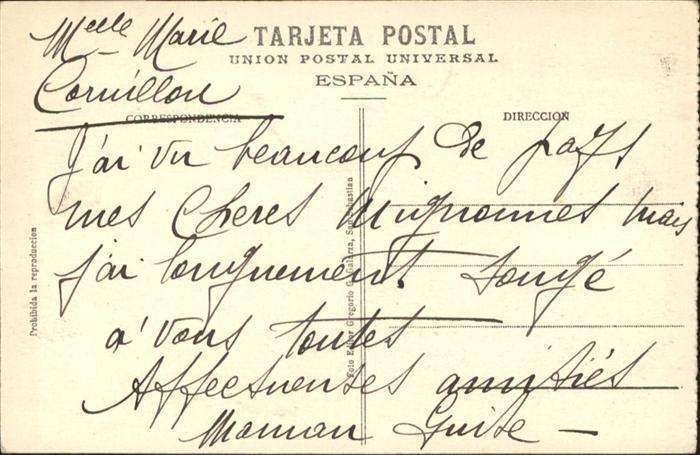 Mcelle Marie
Cornillon
TARJETA POSTAL
UNION POSTAL UNIVERSAL
ESPAÑA
CORRESPONDENCIA
DIRECCION
J'ai vu beaucoup de pays
mes Chères Mignonnes mais
j'ai longuement songé
a' vous toutes
Affectueuses amitiés
Maman Guise —
Prohibida la reproduccion
Gregorio G. Galarza, San Sebastian